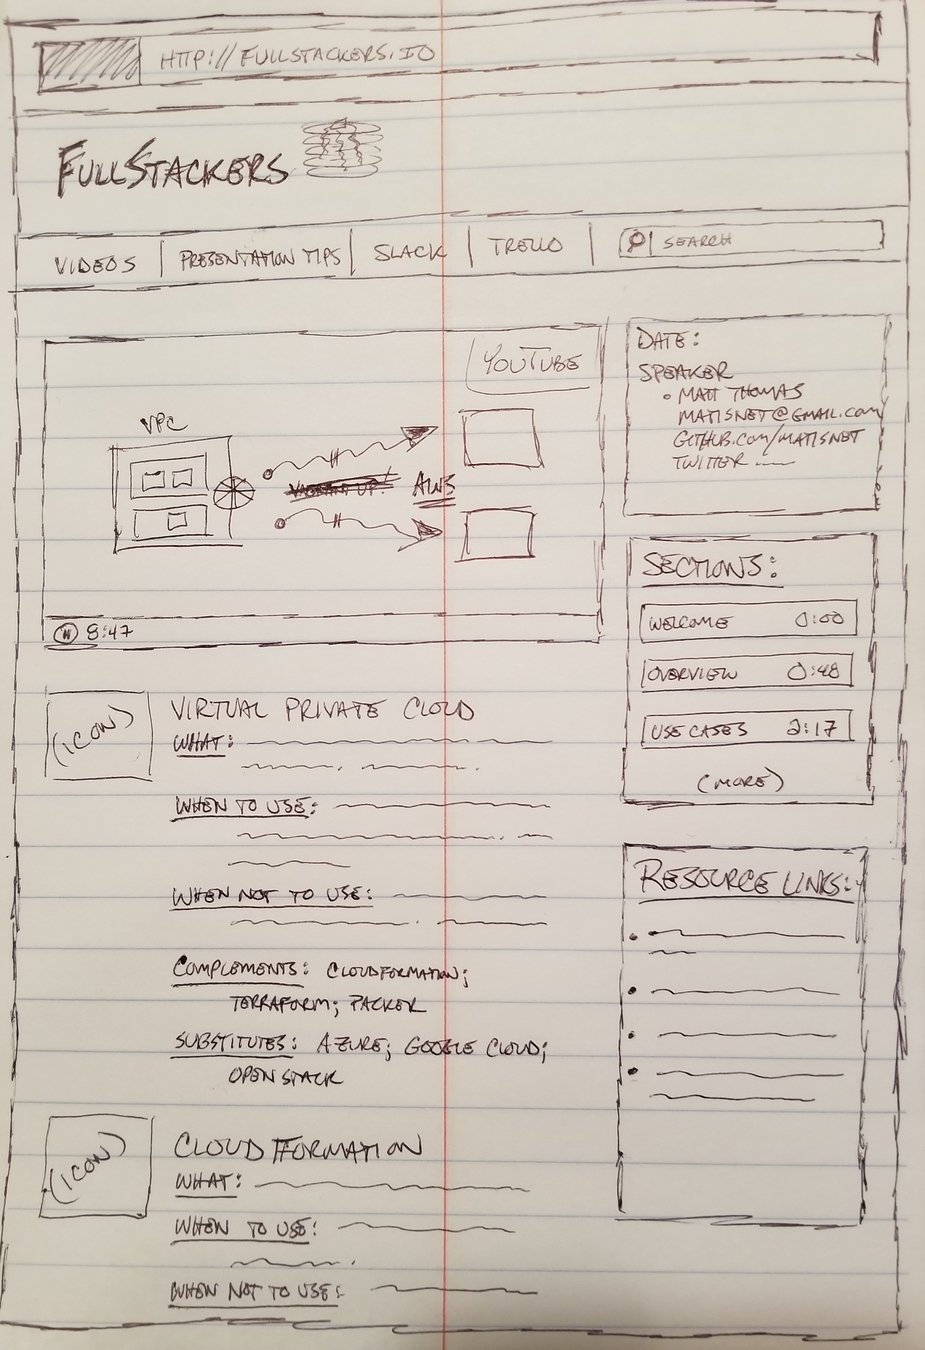 HTTP://FULLSTACKERS.IO
FULLSTACKERS
VIDEOS PRESENTATION TIPS SLACK TRELLO SEARCH
YOUTUBE
VPC
AWS
8:47
DATE:
SPEAKER
• MATT THOMAS
MATISNET@GMAIL.COM
GITHUB.COM/MATISNET
TWITTER
SECTIONS:
WELCOME 0:00
OVERVIEW 0:48
USE CASES 2:17
(MORE)
(ICON)
VIRTUAL PRIVATE CLOUD
WHAT:
WHEN TO USE:
WHEN NOT TO USE:
COMPLEMENTS: CLOUDFORMATION;
TERRAFORM; PACKER
SUBSTITUTES: AZURE; GOOGLE CLOUD;
OPENSTACK
RESOURCE LINKS:
(ICON)
CLOUD FORMATION
WHAT:
WHEN TO USE:
WHEN NOT TO USE: